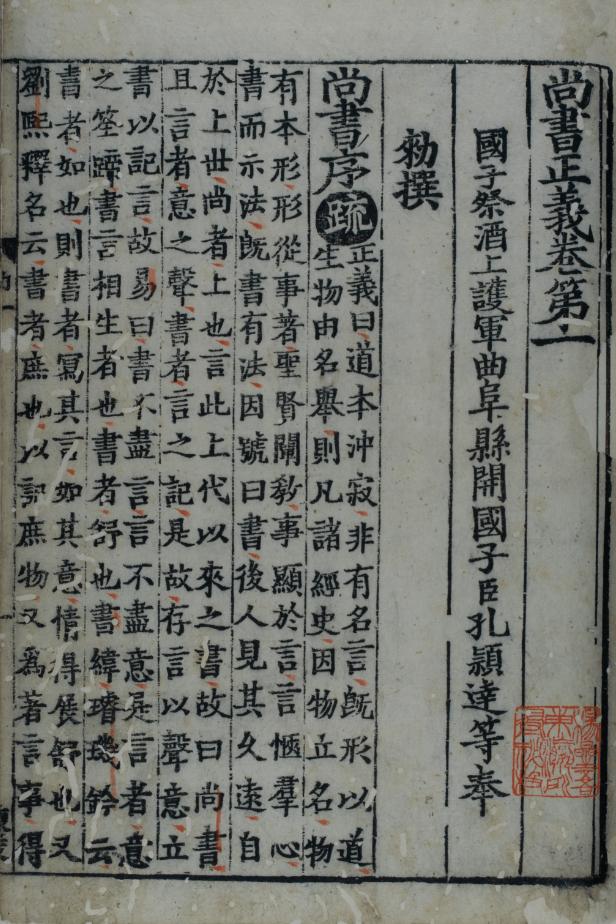 尚書正義卷第二
國子祭酒上護軍曲阜縣開國子臣孔穎達等奉
勑撰
尚書序
疏
正義曰道本沖寂非有名言既形以道
生物由名舉則凡諸經史因物立名物
有本形形從事著聖賢闡教事顯於言言愜羣心
書而示法既書有法因號曰書後人見其久遠自
於上世尚者上也言此上代以來之書故曰尚書
且言者意之聲書者言之記是故存言以聲意立
書以記言故易曰書不盡言言不盡意是言者意
之筌蹄書言相生者也書者舒也書緯璿璣鈐云
書者如也則書者寫其言如其意情得展舒也又
劉熙釋名云書者庶也以記庶物又爲著言事得